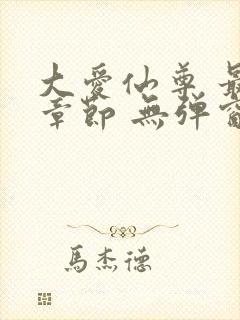 大爱仙尊 最
章節 無弹窗
馬杰德